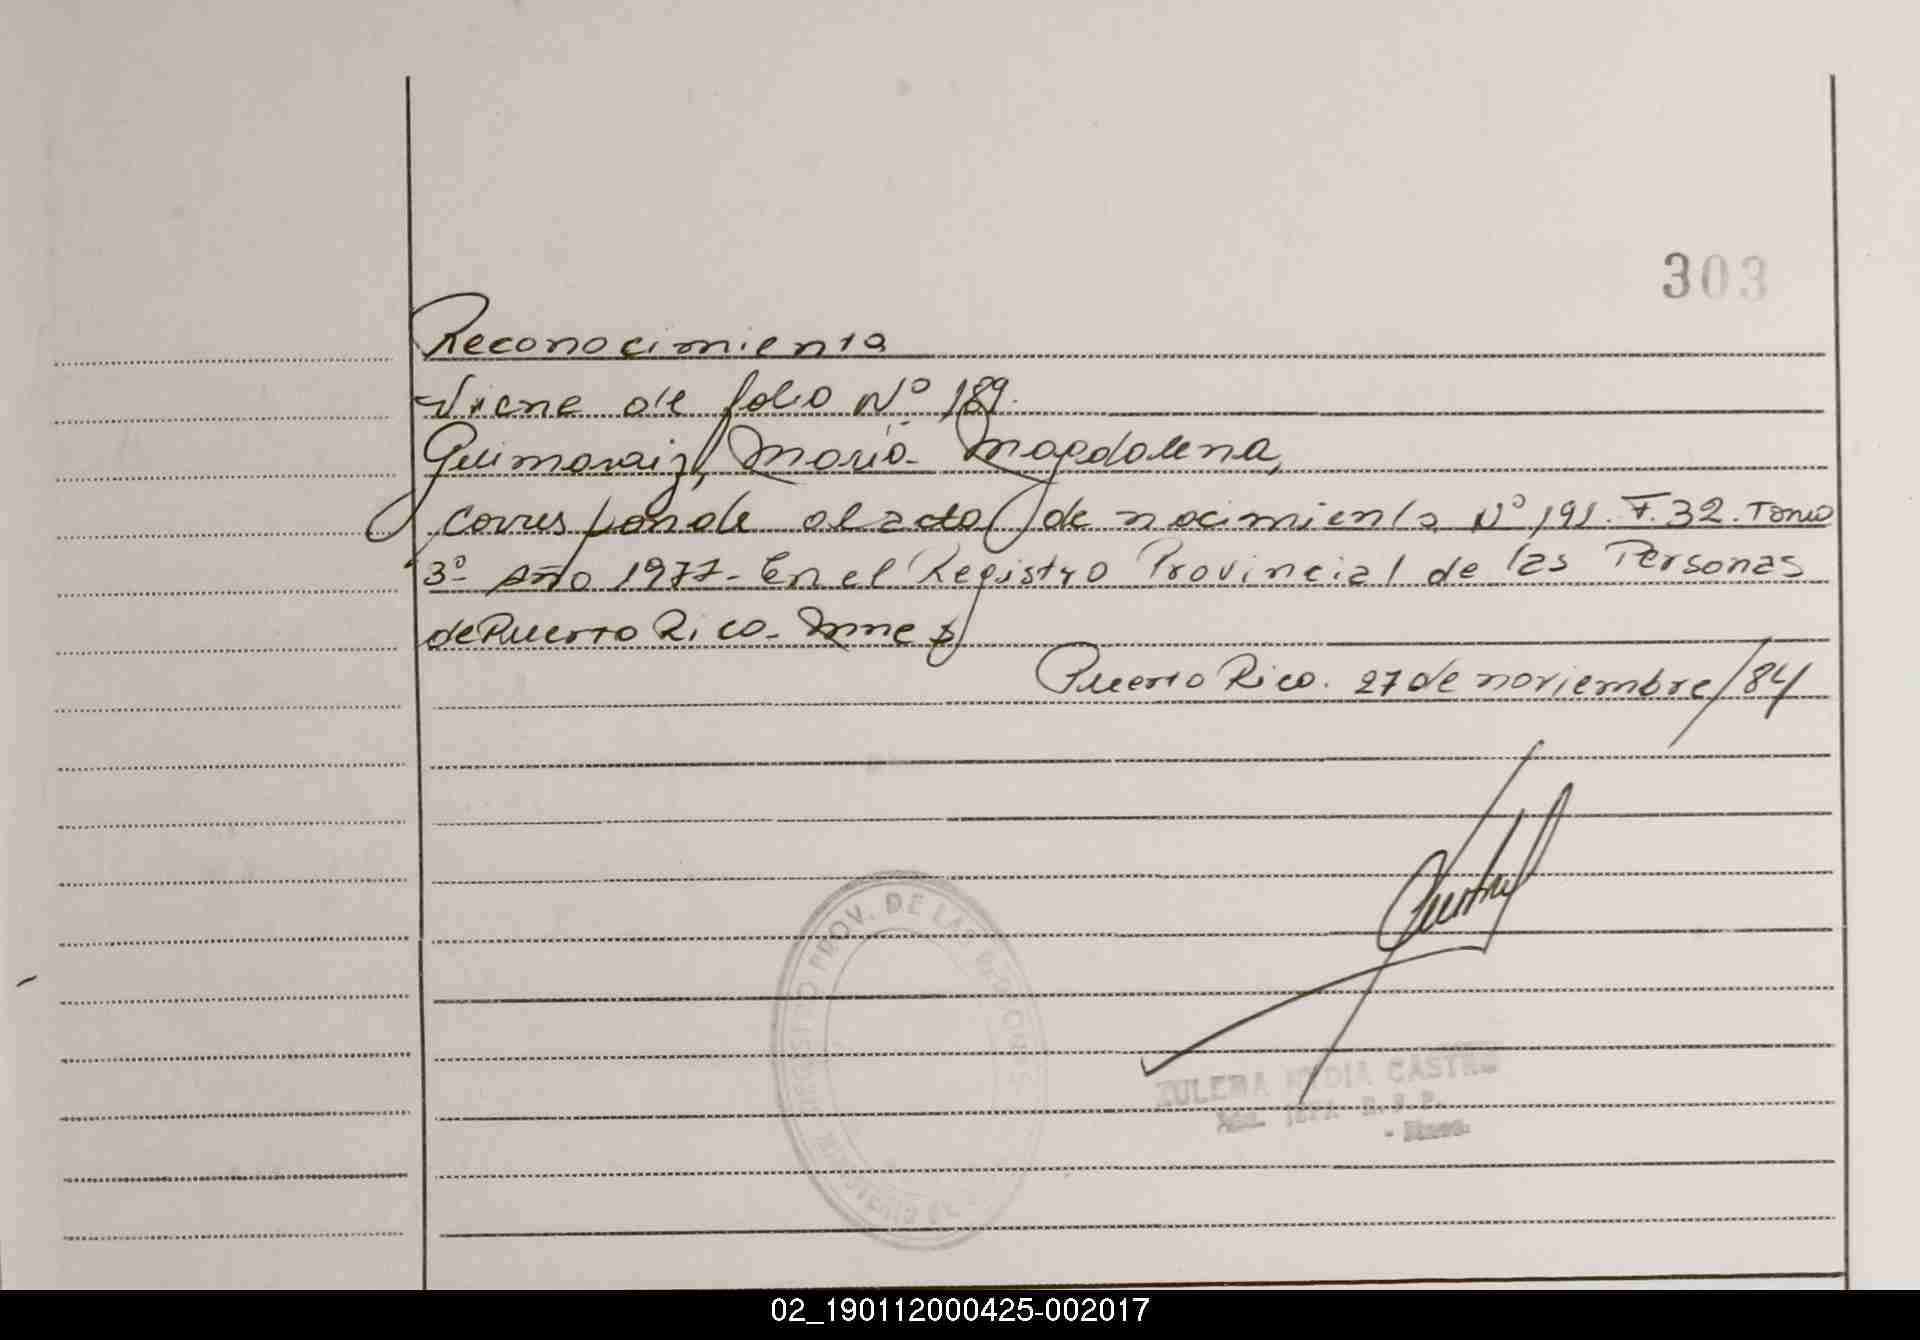 303
Reconocimiento
Viene de folio Nº 189.
Guimaraiz, María Magdalena,
Corresponde al acta de nacimiento Nº 191. F. 32. Tomo
3º Año 1977- En el Registro Provincial de las Personas
de Puerto Rico- Mnes
Puerto Rico. 27 de noviembre/84
PROV. DE LAS PERSONAS
ZULEMA NIDIA CASTRO
R. P. P.
02_190112000425-002017